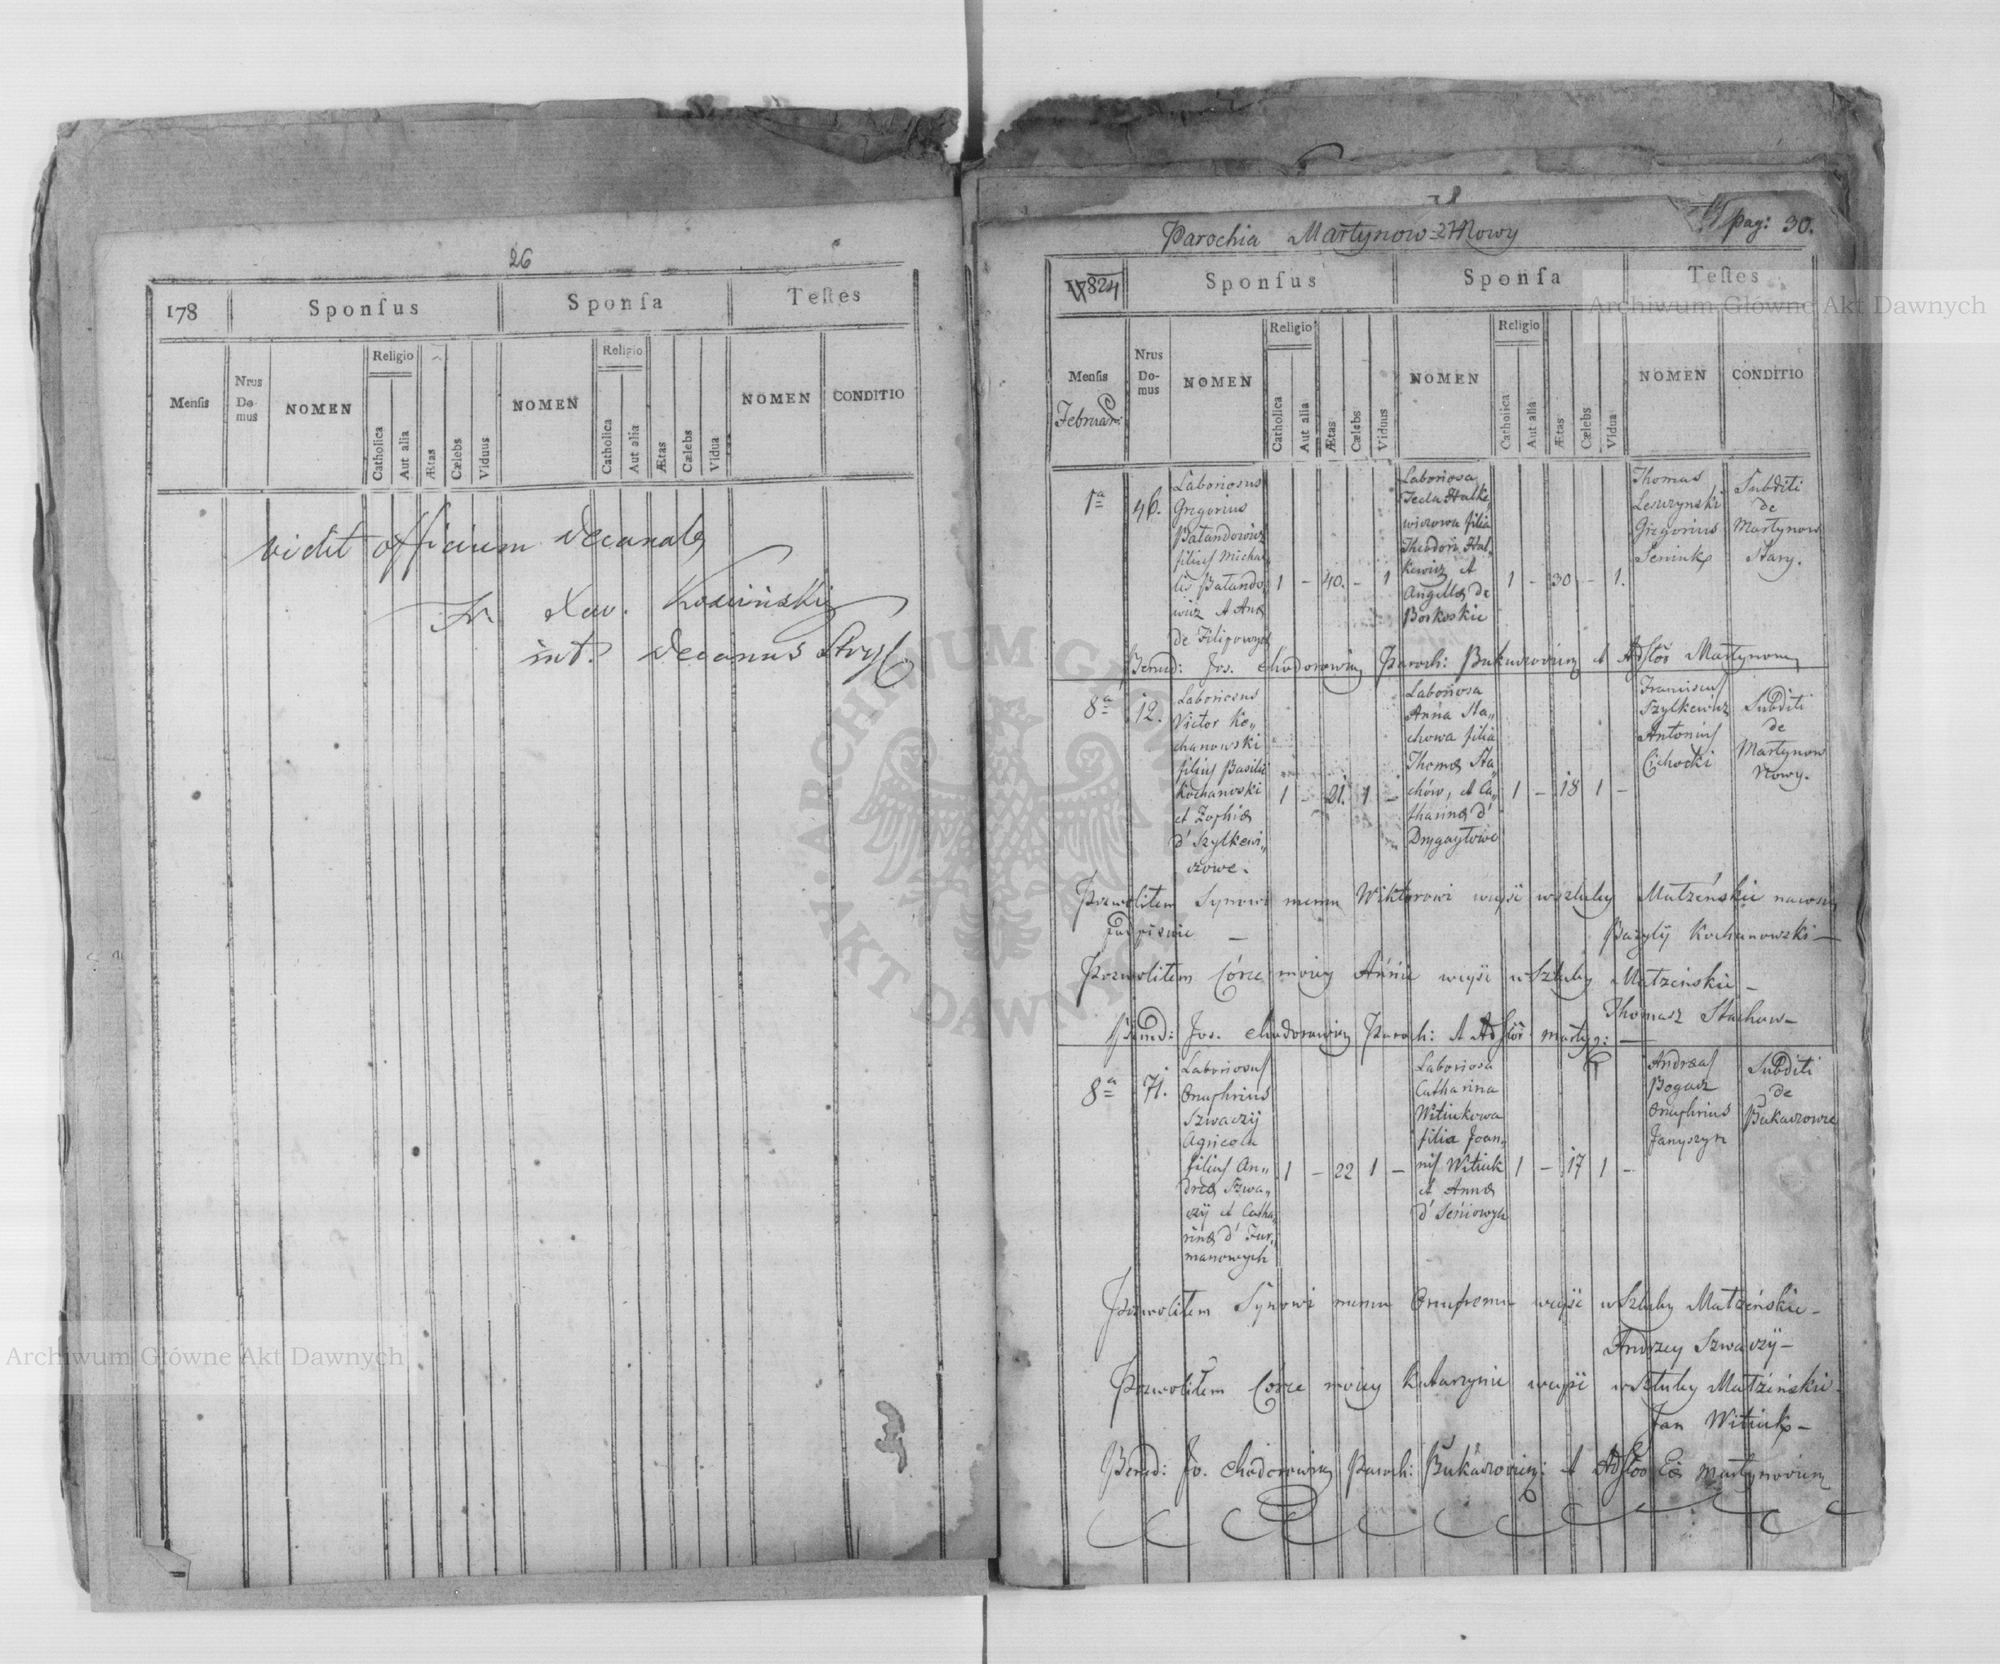 26
178
Sponſus
Sponſa
Teſtes
Menſis
Nrus
Do-
mus
NOMEN
Religio
Catholica
Aut alia
Ætas
Cælebs
Viduus
NOMEN
Religio
Catholica
Aut alia
Ætas
Cælebs
Vidua
NOMEN
CONDITIO
vidit officium Decanale
Xav.
int. Decanus
pag: 30.
Parochia Martynow Nowy
1824
Sponſus
Sponſa
Teſtes
Menſis
Februar:
Nrus
Do-
mus
NOMEN
Religio
Catholica
Aut alia
Ætas
Cælebs
Viduus
NOMEN
Religio
Catholica
Aut alia
Ætas
Cælebs
Vidua
NOMEN
CONDITIO
1a
46.
Laboriosus
Gregorius
Bałandowicz
filius Micha
lis Bałando
wicz et Annæ
de Filipowych
1 - 40. - 1
Laboriosa
Tecla Halke
wiczowa filia
Theodori Hal-
kewicz et
Angellæ de
Borkoskie
1 - 30 - 1.
Thomas
Leszczynski
Gregorius
Seniuk
Subditi
de
Martynow
Stary.
Bened: Jos. Chodorowicz Paroch: Bukaczovien et Martynow
8a
12.
Laboriosus
Victor Ko„
chanowski
filius Basilii
Kochanowski
et Zophiæ
d' Szylkewi„
czowe.
1 - 21. 1 -
Laboriosa
Anna Sta„
chowa filia
Thomæ Sta„
chów, et Ca„
tharinæ d'
Drygayłowe
1 - 18 1 -
Franciscus
Szylkewicz
Antonius
Cichocki
Subditi
de
Martynow
Nowy.
Pozwoliłem Synowi memu Wiktorowi weyść w szluby Małżeńskie
podpisuie -
Bazyly Kochanowski -
Pozwoliłem Córce moiey Annie weyść w Szluby Małżeńskie -
Thomasz Stachow -
Bened: Jos. Chodorowicz Paroch: et Marty:
8a
71.
Laboriosus
Onuphrius
Szwaczÿ
Agricola
filius An„
dreæ Szwa„
czÿ et Catha„
rinæ d' Fur„
manowych
1 - 22 1 -
Laboriosa
Catharina
Witiukowa
filia Joan„
nis Witiuk
et Annæ
d' Seniowych
1 - 17 1 -
Andreas
Bogacz
Onuphrius
Janyszyn
Subditi
de
Bukaczowce
Pozwoliłem Synowi memu Onufremu weyść w Szluby Małżeńskie -
Andrzey Szwaczÿ -
Pozwoliłem Córce moiey Katarzynie weyść w Szluby Małżeńskie -
Jan Witiuk -
Bened: Jo. Chodorowicz Paroch: Bukaczovien: et Martynovien
Archiwum Główne Akt Dawnych
Archiwum Główne Akt Dawnych
ARCHIWUM GŁÓWNE AKT DAWNYCH